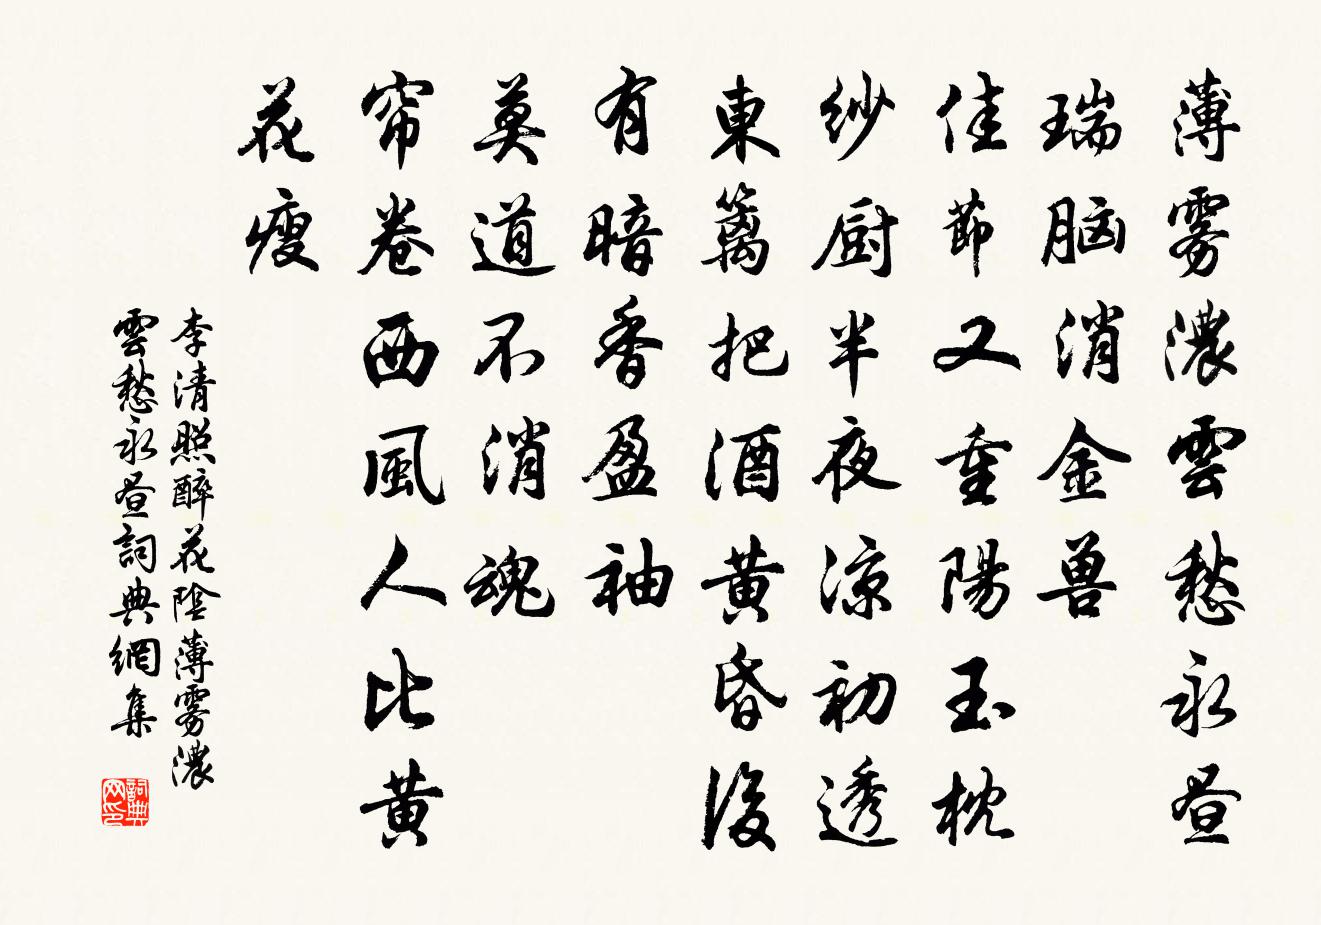 薄霧濃雲愁永昼
瑞脑消金兽
佳節又重陽玉枕
紗厨半夜凉初透
東籬把酒黄昏後
有暗香盈袖
莫道不消魂
帘卷西風人比黄
花瘦
李清照醉花陰薄霧濃
雲愁永昼詞典網集
詞典网印